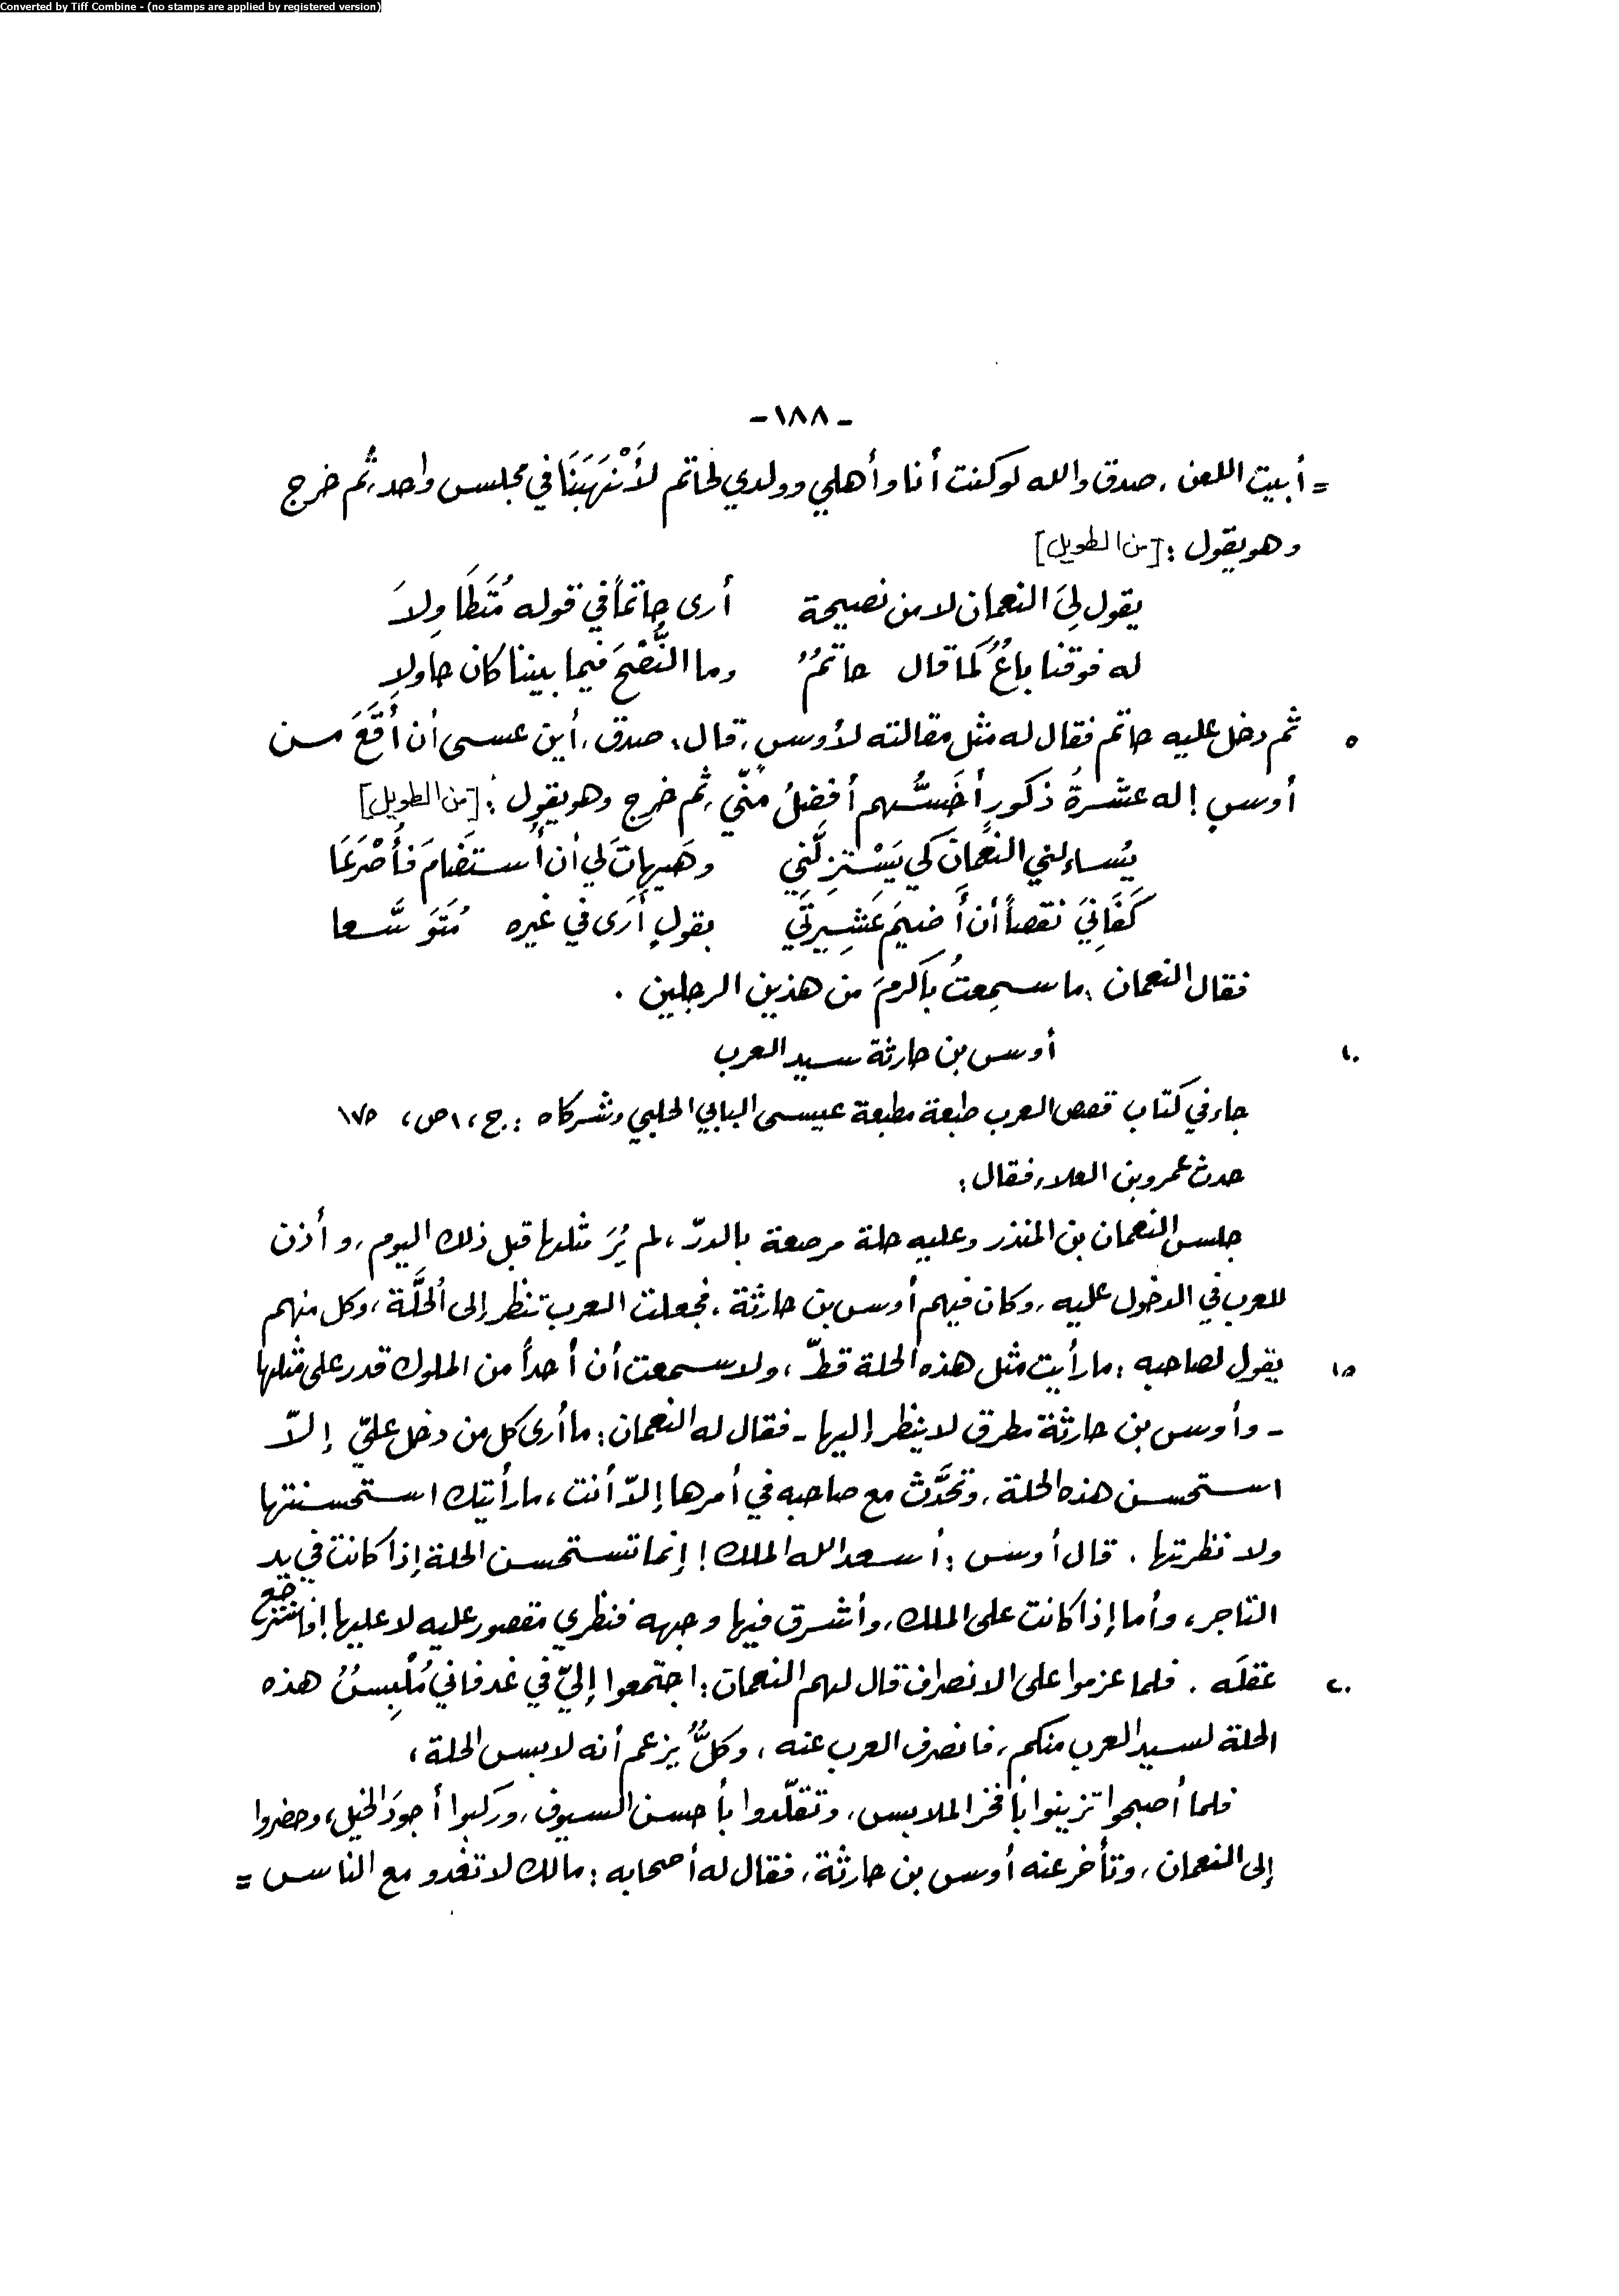 Converted by Tiff Combine - (no stamps are applied by registered version)
- ١٨٨ -
= أبيت اللعن، صدق والله لو كنت أنا وأهلي وولدي لحاتم لأَنْهَبَنَا في مجلس واحد، ثم خرج
وهو يقول : [من الطويل]
يقول لِيَ النعمان لا من نصيحة أرى حاتماً في قوله مُتَطَاوِلاَ
له فوقنا باعٌ كما قال حاتمٌ وما النُّصْحُ فيما بيننا كان حاولا
٥ ثم دخل عليه حاتم فقال له مثل مقالته لأوسٍ، قال: صدق، أين عسى أن أَقَعَ مسن
أوسٍ! له عشرةُ ذكورٍ أخَسُّهم أفضلُ منّي، ثم خرج وهو يقول : [من الطويل]
يُساءلني النعمانُ كي يَسْتزِلَّنِي وهَيهاتَ لي أن أُستَضَامَ فَأُصْرَعَا
كَفَانِيَ نقصاً أن أَضيمَ عَشِيرتَي بقولٍ أرى في غيره مُتَوَسَّعا
فقال النعمان : ما سمِعتُ بأكرمَ من هذين الرجلين .
١٠ أوس بن حارثة سيد العرب
جاء في كتاب قصص العرب طبعة مطبعة عيسى البابي الحلبي وشركاه : ج، ١ ص، ١٧٥
حدث عمرو بن العلاء فقال :
جلس النعمان بن المنذر وعليه حلة مرصعة بالدرّ، لم يُرَ مثلها قبل ذلك اليوم، وأذن
للعرب في الدخول عليه، وكان فيهم أوس بن حارثة، فجعلت العرب تنظر إلى الحُلَّة، وكل منهم
١٥ يقول لصاحبه : ما رأيت مثل هذه الحلة قطّ، ولا سمعت أن أحداً من الملوك قدر على مثلها
- وأوس بن حارثة مطرق لا ينظر إليها - فقال له النعمان : ما أرى كل من دخل عليّ إلاّ
استحسن هذه الحلة، وتحَدَّث مع صاحبه في أمرها إلاّ أنت، ما رأيتك استحسنتها
ولا نظرتها . قال أوس : أسعد الله الملك ! إنما تستحسن الحلة إذا كانت في يد
التاجر، وأما إذا كانت على الملك، وأشرق فيها وجهه فنظري مقصور عليه لا عليها !
عقلَه . فلما عزموا على الانصراف قال لهم النعمان : اجتمعوا إليّ في غد فاني مُلْبِسٌ هذه ٢٠
الحلة لسيد العرب منكم، فانصرف العرب عنه، وكلٌّ يزعم أنه لابس الحلة،
فلما أصبحوا تزينوا بأفخر الملابس، وتقلّدوا بأحسن السيوف، وركبوا أجودَ الخيل، وحضروا
إلى النعمان، وتأخر عنه أوس بن حارثة، فقال له أصحابه : مالك لا تغدو مع الناس =